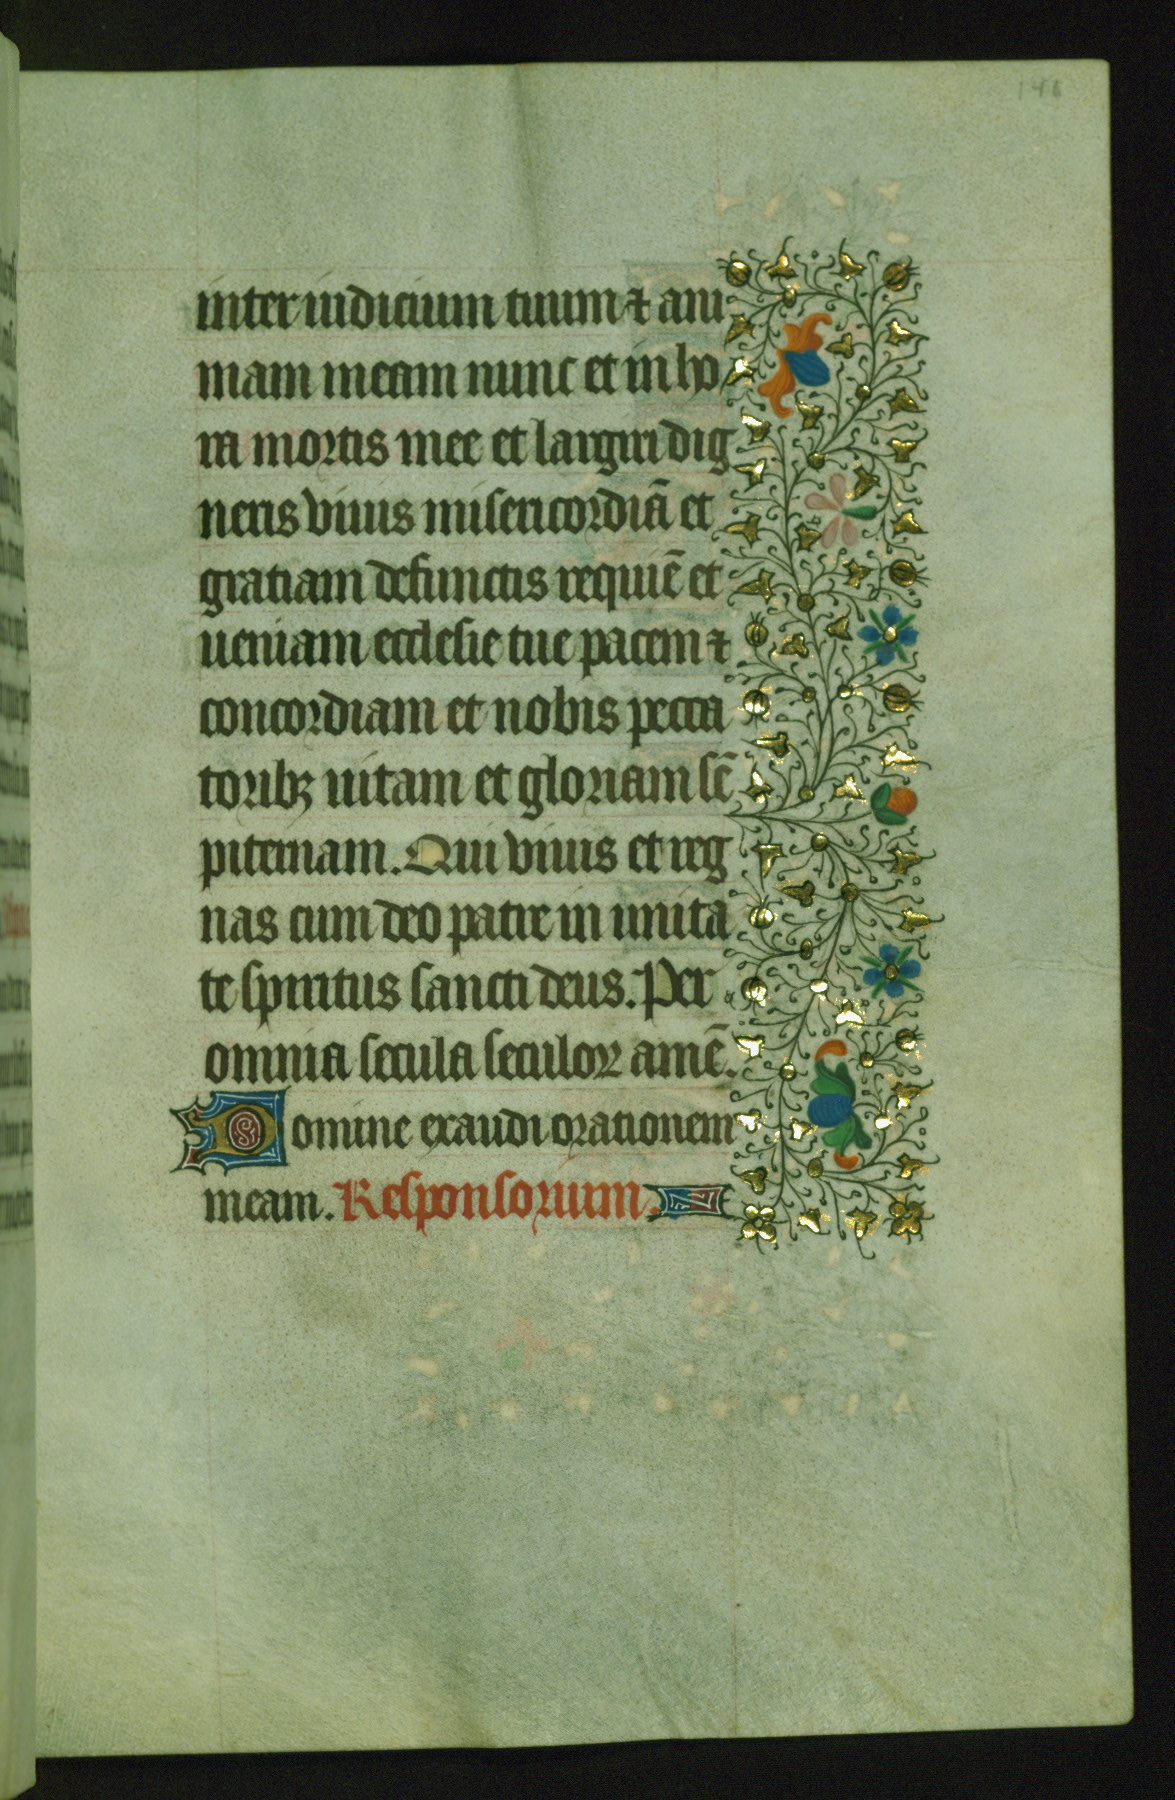 146
inter iudicium tuum ⁊ ani
mam meam nunc et in ho
ra mortis mee et largiri dig
neris viuis misericordiā et
gratiam defunctis requiē et
ueniam ecclesie tue pacem ⁊
concordiam et nobis pecca
toribꝫ uitam et gloriam sē
piternam. Qui viuis et reg
nas cum deo patre in unita
te spiritus sancti deus. Per
omnia secula seculoꝝ amē.
Domine exaudi orationem
meam. Responsorium.